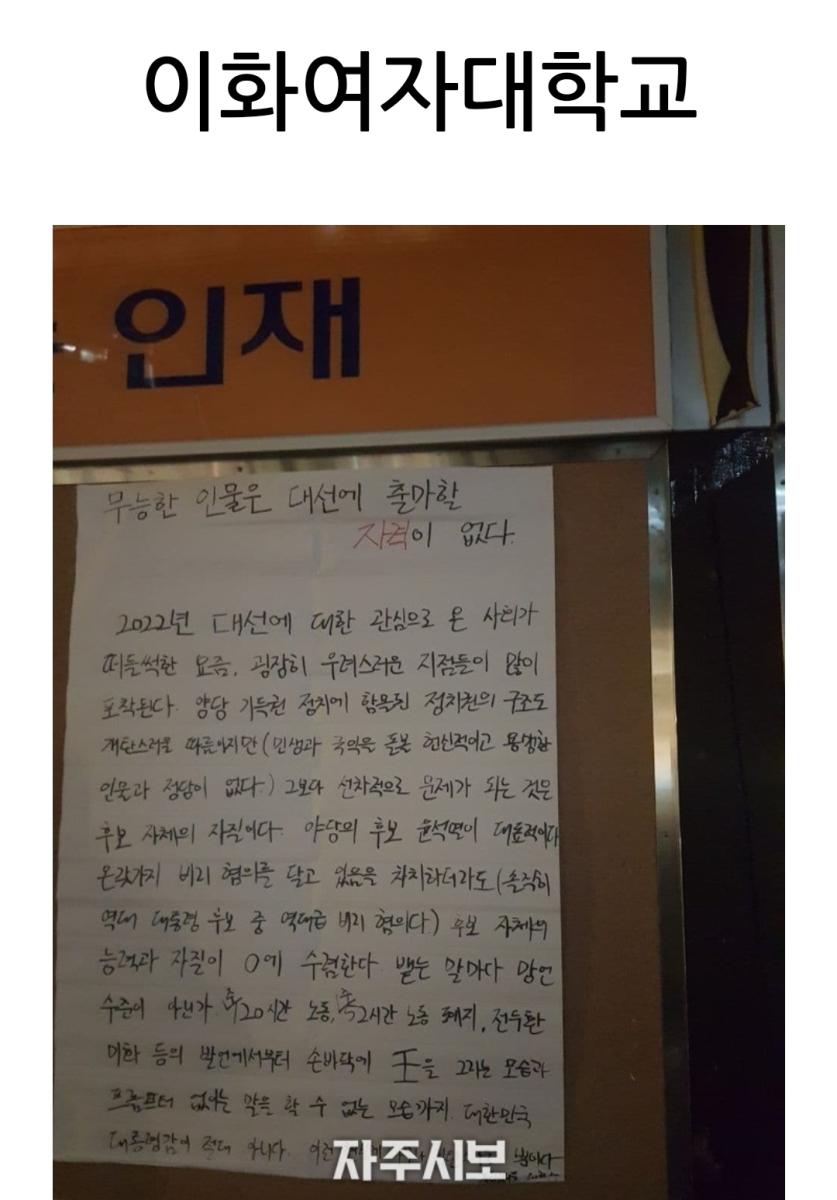 이화여자대학교
인재
무능한 인물은 대선에 출마할
자격이 없다.
2022년 대선에 대한 관심으로 온 사회가
떠들썩한 요즘, 굉장히 우려스러운 지점들이 많이
포착된다. 양당 기득권 정치에 함몰된 정치권의 구조도
개탄스러울 따름이지만 (민생과 국익을 돌볼 헌신적이고 용맹한
인물과 정당이 없다.) 그보다 선차적으로 문제가 되는 것은
후보 자체의 자질이다. 야당의 후보 윤석열이 대표적이다
온갖가지 비리 혐의를 달고 있음을 차치하더라도 (솔직히
역대 대통령 후보 중 역대급 비리 혐의다) 후보 자체의
능력과 자질이 0에 수렴한다. 뱉는 말마다 망언
수준이 아닌가. 주120시간 노동, 주52시간 노동 폐지, 전두환
미화 등의 발언에서부터 손바닥에 王을 그리는 모습과
프롬프터 없이는 말을 할 수 없는 모습까지. 대한민국
대통령감이 절대 아니다. 이런
자주시보
뿐이다